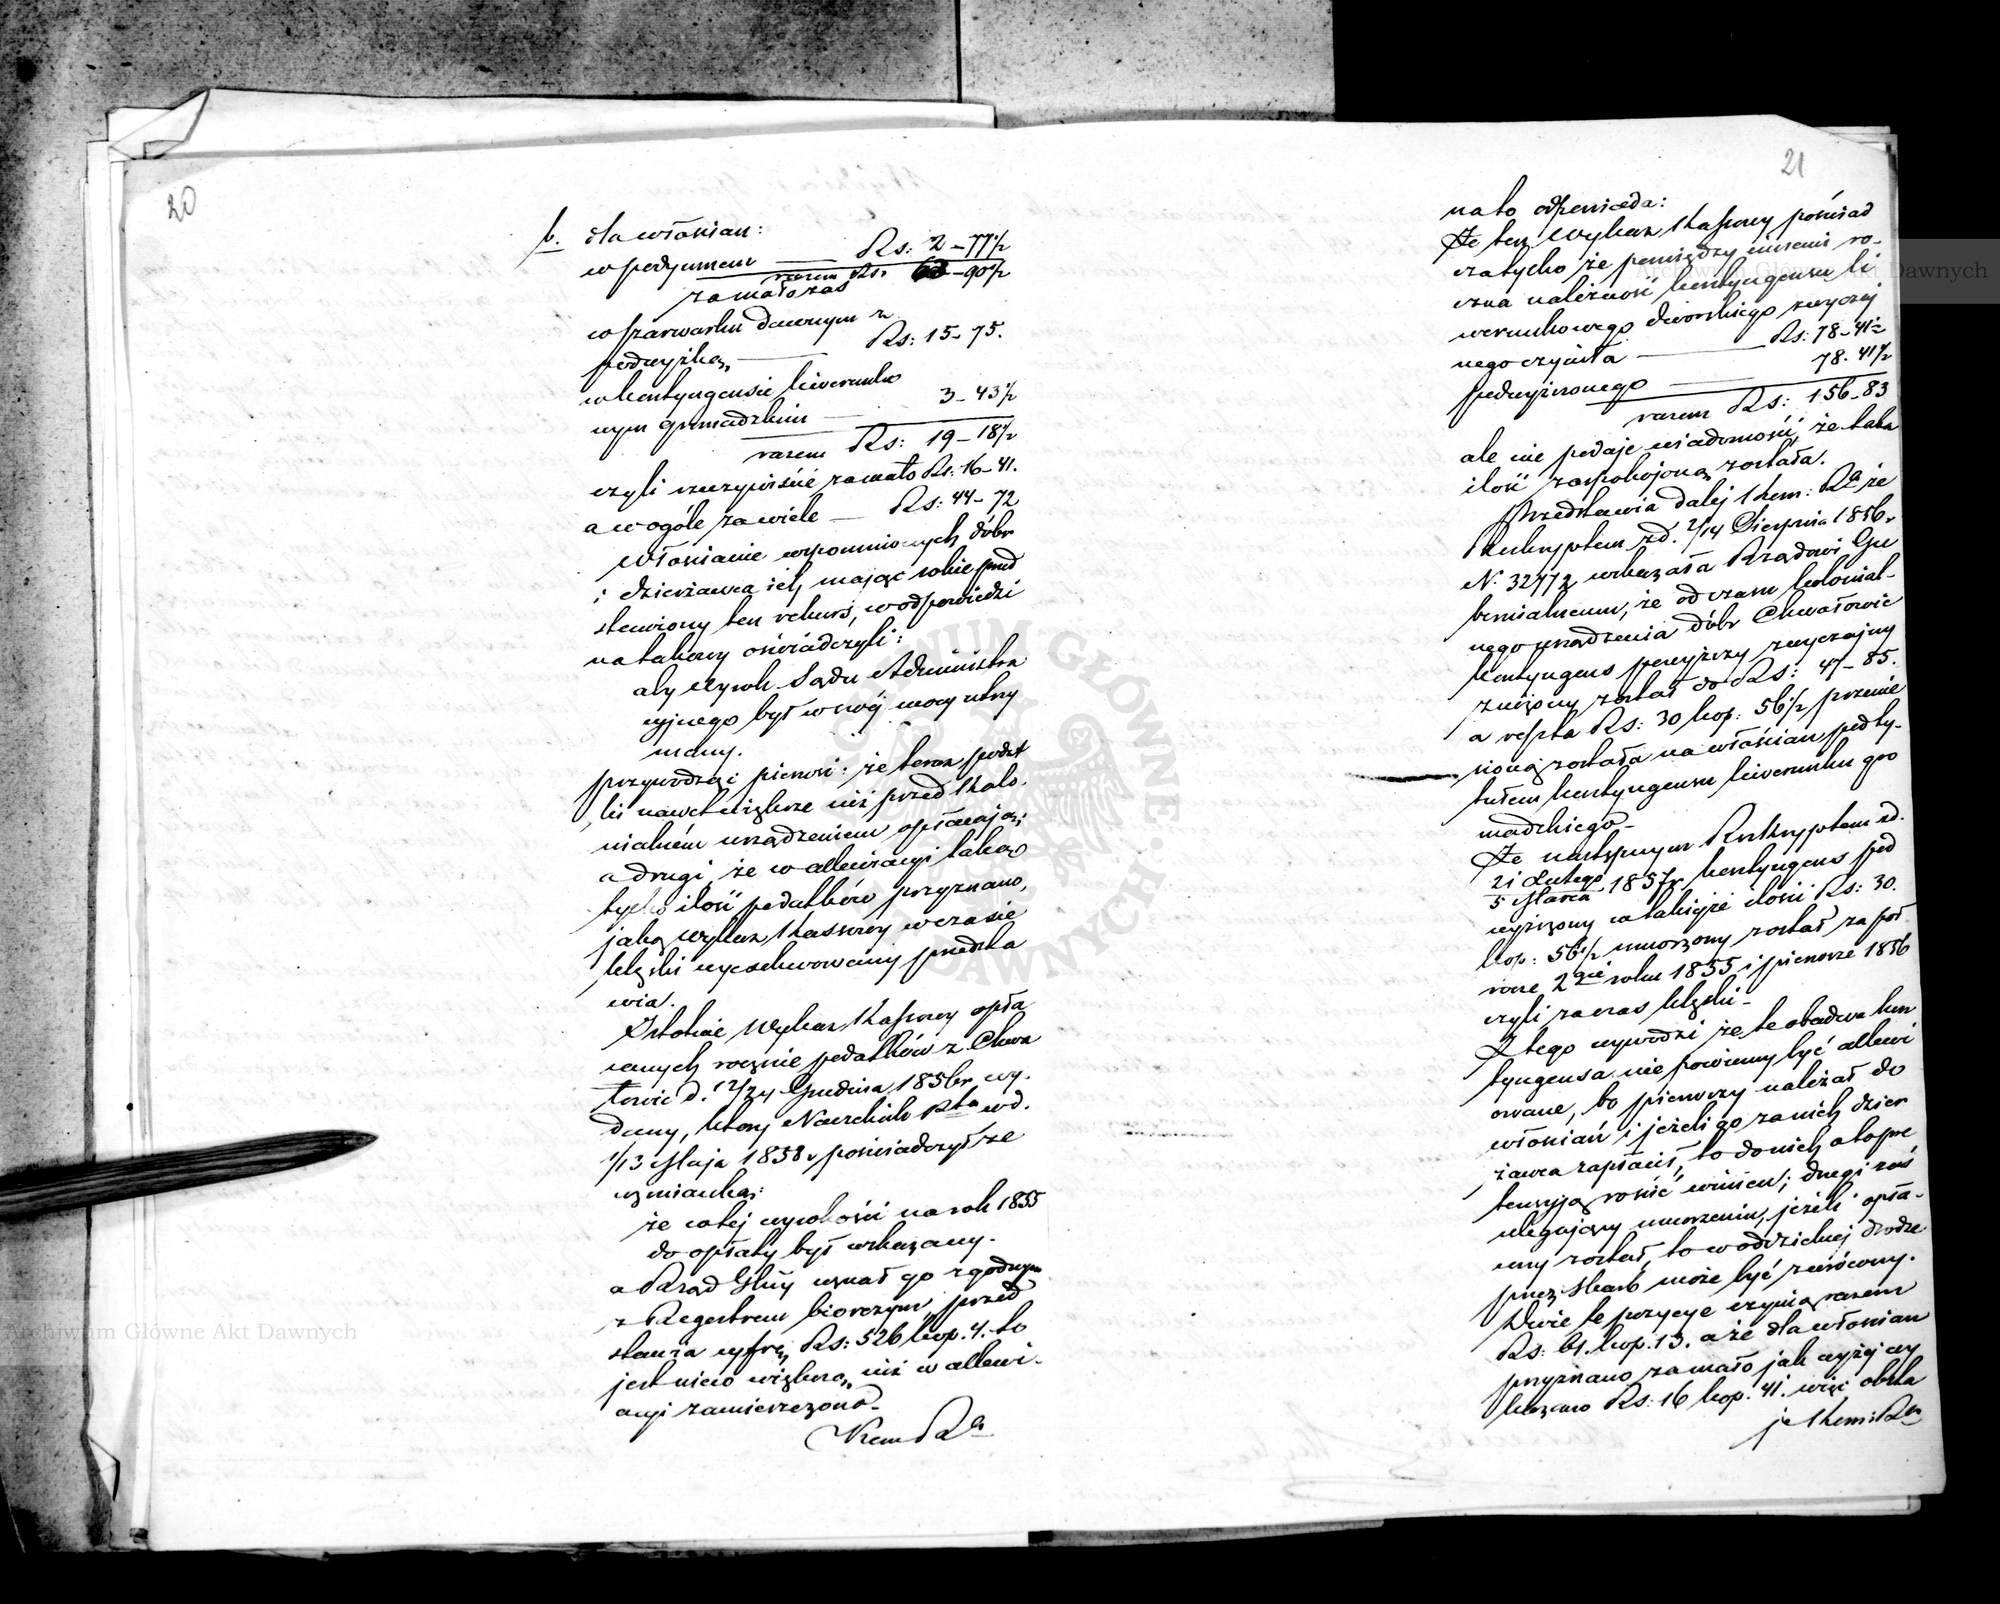 20
b. dla włościan:
w podymnem — Rs: 2 — 77½
razem Rs: 63 — 90½
zamało zaś
w szarwarku dawnym z
podwyżką — Rs: 15 — 75.
w kontyngensie liwerunko
wym gromadzkim — 3 — 43½
razem Rs: 19 — 18½
czyli rzeczywiście zamało Rs: 16 — 41.
a w ogóle zawiele — Rs: 44 — 72
Włościanie wspomnionych dóbr
i dzierżawca ich, mając sobie przed
stawiony ten rekurs, w odpowiedzi
na takowy oświadczyli:
aby wyrok Sądu Administra
cyjnego był w swéj mocy utrzy
many.
przywodząc pierwsi: że teraz podat
ki nawet większe niż przed kolo-
nialném urządzeniem opłacają;
a drugi, że w allewiacyi taką
tylko ilość podatków przyznano,
jaką wykaz Kassowy w czasie
klęski wyexekwowaną przedsta
wia.
Istotnie Wykaz Kassowy opła
canych rocznie podatków z Chwa
łowic d. 12/24 Grudnia 1856 r. wy-
dany, który Naczelnik Ptu w d.
1/13 Maja 1858 r. poświadczył ze
wzmianką:
że w tej wysokości na rok 1855
do opłaty był wskazany.
a Rząd Gbny uznał go zgodnym
z Regestrem bierczym, przed
stawia cyfrę Rs: 526 kop. 4. to
jest nieco większą, niż w allewi-
acyi zamieszczono.
Kom. Rza
21
na to odpowiada:
Że ten Wykaz Kassowy poświad
cza tylko że pomiędzy innemi ro-
czna należność kontyngensu li
werunkowego dworskiego zwyczaj
nego czyniła — Rs: 78 — 41½
podwyższonego — 78. 41½
razem Rs: 156 — 83
ale nie podaje wiadomości, że taka
ilość zaspokojoną została.
Przedstawia dalej Kom: Rza że
Reskryptem z d. 2/14 Sierpnia 1856 r.
N. 32772 wskazała Rządowi Gu
bernialnemu, że od czasu kolonial-
nego urządzenia dóbr Chwałowic
kontyngens powyższy zwyczajny
zniżony został do Rs: 47 — 85.
a reszta Rs: 30 kop: 56½ przenie
sioną została na włościan pod ty-
tułem kontyngensu liwerunku gro
madzkiego.
Że następnym Reskryptem z d.
21 Lutego / 5 Marca 1857 r. kontyngens pod
wyższony w takiejże ilości Rs: 30.
kop: 56½ umorzony został za pół
rocze 2gie roku 1855 i pierwsze 1856
czyli za czas klęski.
Z tego wywodzi że te obadwa kon
tyngensa nie powinny być allewi
owane, bo pierwszy należał do
włościan i jeżeli go za nich dzier
żawca zapłacił, to do nich o to pre
tensyją rościć winien; drugi zaś
ulegający umorzeniu, jeżeli opła-
cony został, to w oddzielnej drodze
przez Skarb może być zwrócony.
Dwie te pozycye czynią razem
Rs: 61. kop. 13. a że dla włościan
przyznano zamało jak wyżej wy
kazano Rs: 16 kop. 41. więc obsta
je Kom: Rza